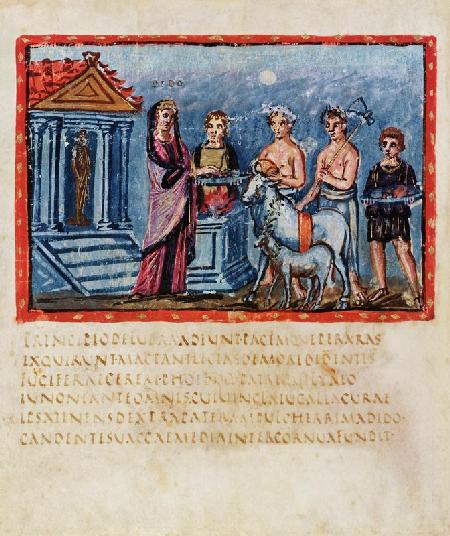 DIDO
PRINCIPIODELUBRAADEUNTPACEMQUEPERARAS
EXQUIRUNTMACTANTLECTASDEMOREBIDENTIS
LEGIFERAECERERIPHOEBOQUEPATRIQUELYAEO
IUNONIANTEOMNISCUIUINCLAIUGALIACURAE
IPSATENENSDEXTRAPATERAMPULCHERRIMADIDO
CANDENTISUACCAEMEDIAINTERCORNUAFUNDIT